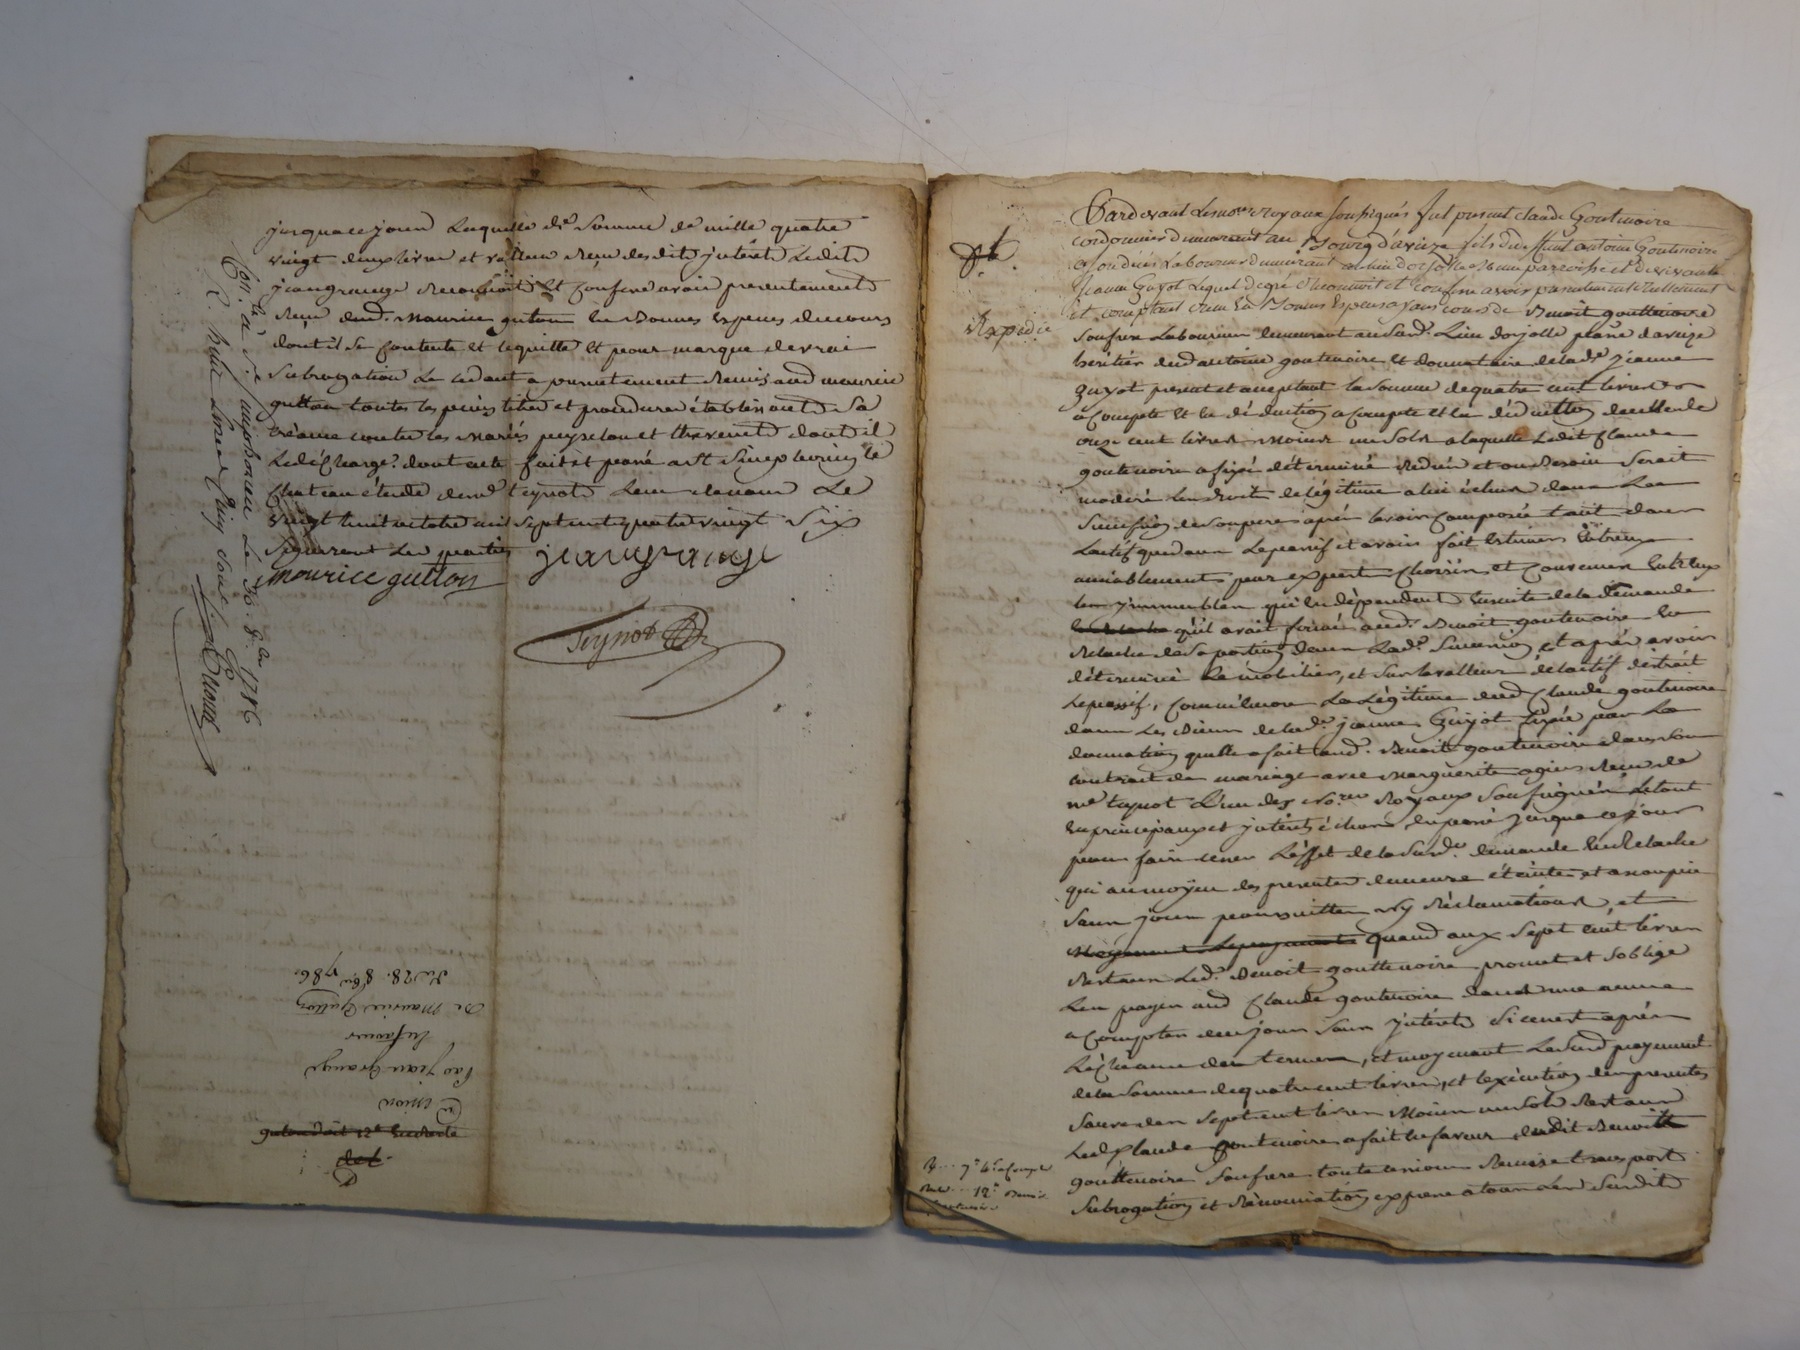 jusqua ce jour Laquelle de Somme de mille quatre
vingt deux livres et reçu desdits jnterets Ledit
jean grange Reconnoit et Confesse avoir presentement
Reçu dud. Maurice gutton En Bonnes Especes du cours
dont il se Contente et le quitte Et pour marque de vraie
Subrogation Le cedant a presentement Remis aud maurice
gutton toutes les pieces titres et procedures établissant Sa
créance contre les mariés peyselon et thevenet dont il
Le décharge. dont acte fait et passé a St Simphorien le
Chateau étude de me teynod Lun devant Le
vingt huit octobre mil sept cent quatre vingt Six
Signeront Les parties
jean grange
mourice gutton
Teynod
Con. à St. simphorien Le 30. 8.bre 1786
R. huit Livres
Du 28. 8bre 1786
De Maurice Gutton
En faveur
Par jean Grange
Cession
Pardevant Les nores Royaux soussignés fut present claude Goutenoire
cordonnier demeurant au Bourg d'aveize fils de deffunt antoine Goutenoire
Laboureur demeurant au lieu dorjolle meme parroisse et de vivante
Jeanne Guyot Lequel de gré Reconnoit et Confesse avoir presentement Reellement
et comptant reçu En Bonnes Especes ayans cours de Benoit gouttenoire
Expediée
Son frere Laboureur demeurant au Susd. Lieu dorjolle psse d'aveize
heritier dud antoine goutenoire et donnataire de lade jeanne
guyot present et acceptant la Somme de quatre cent livres
a Compte Et en déduction a Compte et en déduction de celle de
onze cent livres moins un Sols a laquelle Ledit Claude
goutenoire a fixé déterminé Reduit et ou Besoin Serait
moderé Les droits de légitime a lui échus dans La
Succession de Son pere après lavoir Composée tant dans
Lactif que dans Le passif et avoir fait Estimer Entreux
amiablement par experts Choisis et Convenus Entreux
les jmmeubles qui En dépendent Ensuite de la demande
qu'il avait formé aud. Benoit goutenoire En
Relache de Sa portion dans Lade. Succession, et après avoir
déterminé Le mobilier, et Sur la valleur de lactif distrait
Le passif, Comme encore La Légitime dud Claude goutenoire
dans Les Biens de lade. jeanne Guyot fixée par La
donnation quelle a fait aud. Benoit goutenoire dans Son
contract de mariage avec Marguerite ogier Reçu de
me teynod L'un des No.res Royaux Soussignés Le tout
En principaux et jnterets échus du passé jusqua ce jour
pour faire cesser L'effet de la Susde. demande En Relache
qui au moyen des presentes demeure éteinte et assoupie
Sans jcelle poursuitte ny Réclamations, et
quand aux Sept cent livres
Restans Led. Benoit gouttenoire promet et Soblige
Les payer aud Claude goutenoire dans une année
a Compter de ce jour Sans jnterets Si ce n'est après
L'echeance des termes, et moyenant Le Susd payement
de la Somme de quatre cent livres, et l'execution des presentes
Sauve des Sept cent livres Moins un Sols Restans
Led Claude goutenoire a fait En faveur dudit Benoitt
gouttenoire Son frere toute cession Remise transport
Subrogation et Renonciation expresse a tous Les Susdits